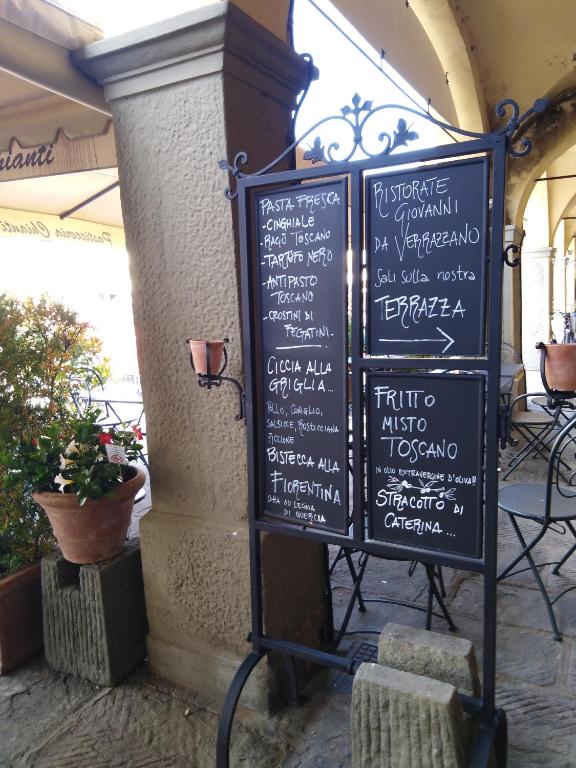 hianti
Pasticceria Chianti
PASTA FRESCA
- CINGHIALE
- RAGÙ TOSCANO
- TARTUFO NERO
- ANTIPASTO
TOSCANO
- CROSTINI DI
FEGATINI.
CICCIA ALLA
GRIGLIA...
POLLO, CONIGLIO,
SALSICCE, ROSTICCIANA
PICCIONE
BISTECCA ALLA
FIORENTINA
COTTA SU LEGNA
DI QUERCIA
RISTORATE
GIOVANNI
DA VERRAZZANO
Sali sulla nostra
TERRAZZA
FRITTO
MISTO
TOSCANO
IN OLIO EXTRAVERGINE D'OLIVA!!
STRACOTTO DI
CATERINA...